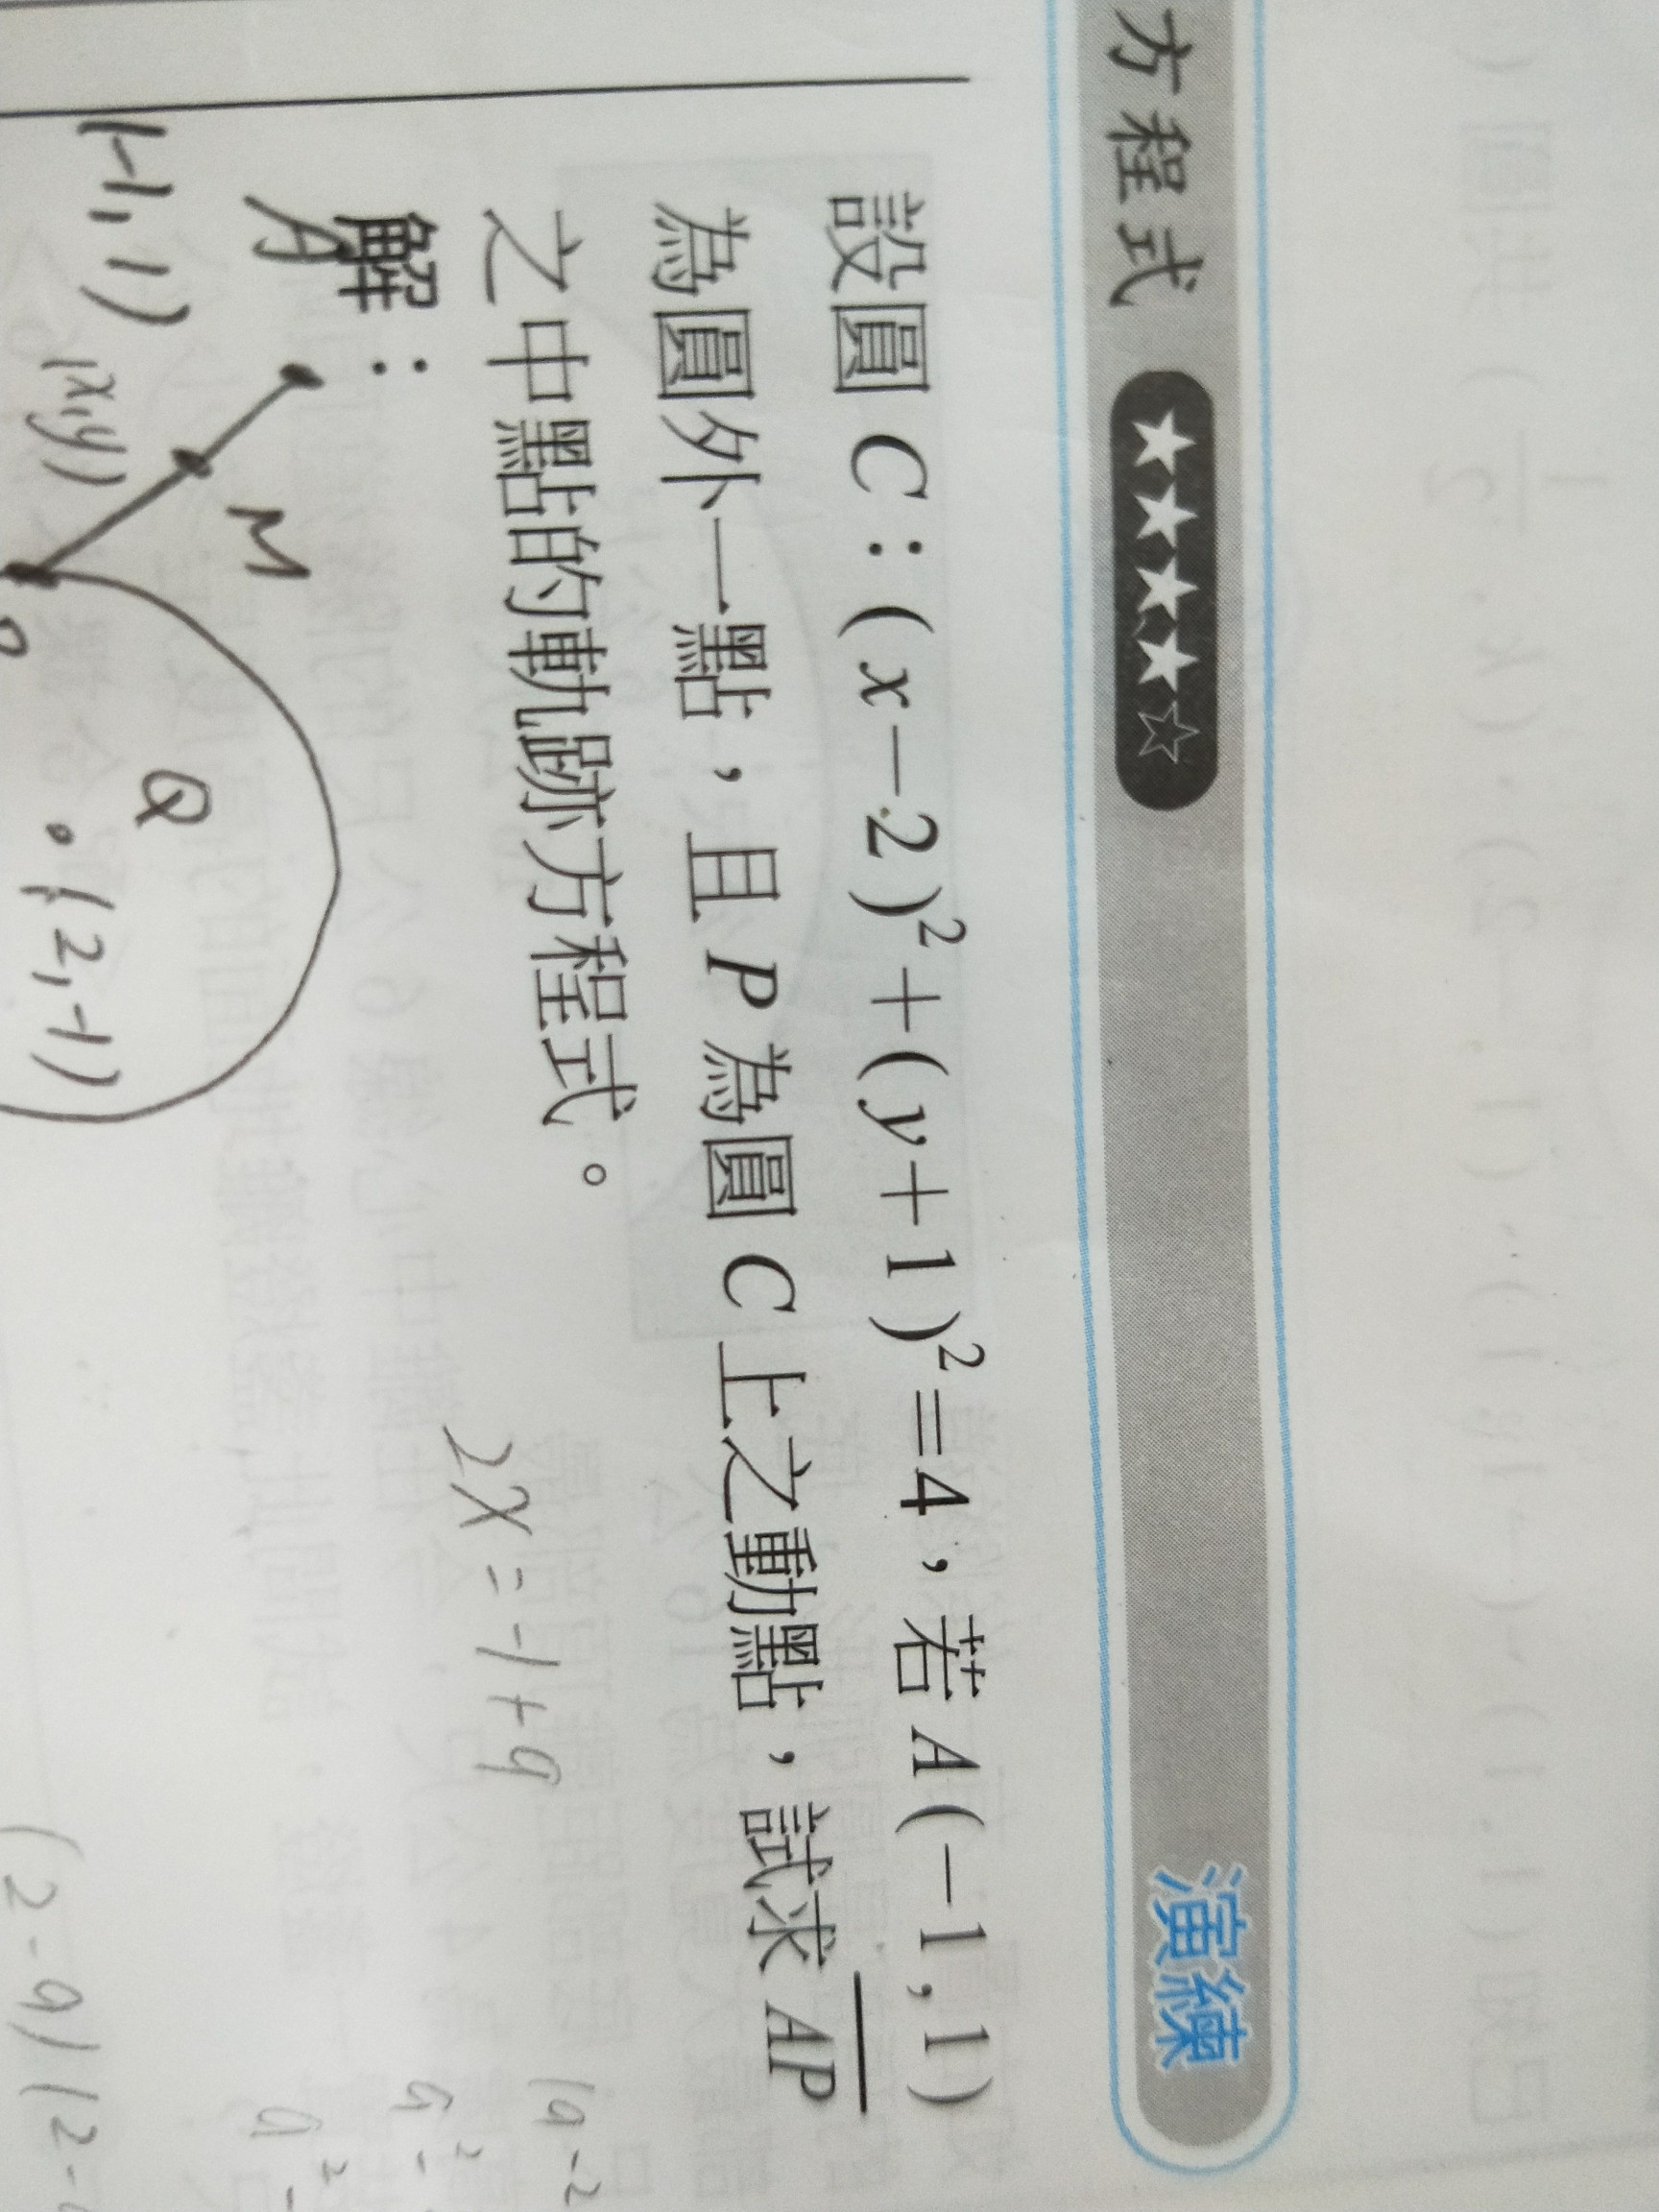 方程式 ★★★★☆ 演練
設圓 C：(x－2)²＋(y＋1)²＝4，若 A(－1,1)
為圓外一點，且 P 為圓 C 上之動點，試求 AP
之中點的軌跡方程式。
解：
A
(-1, 1)
M
(x,y)
Q
(2,-1)
2x = -1+a
(a-2
a²-
a²-
(2-a)(2-